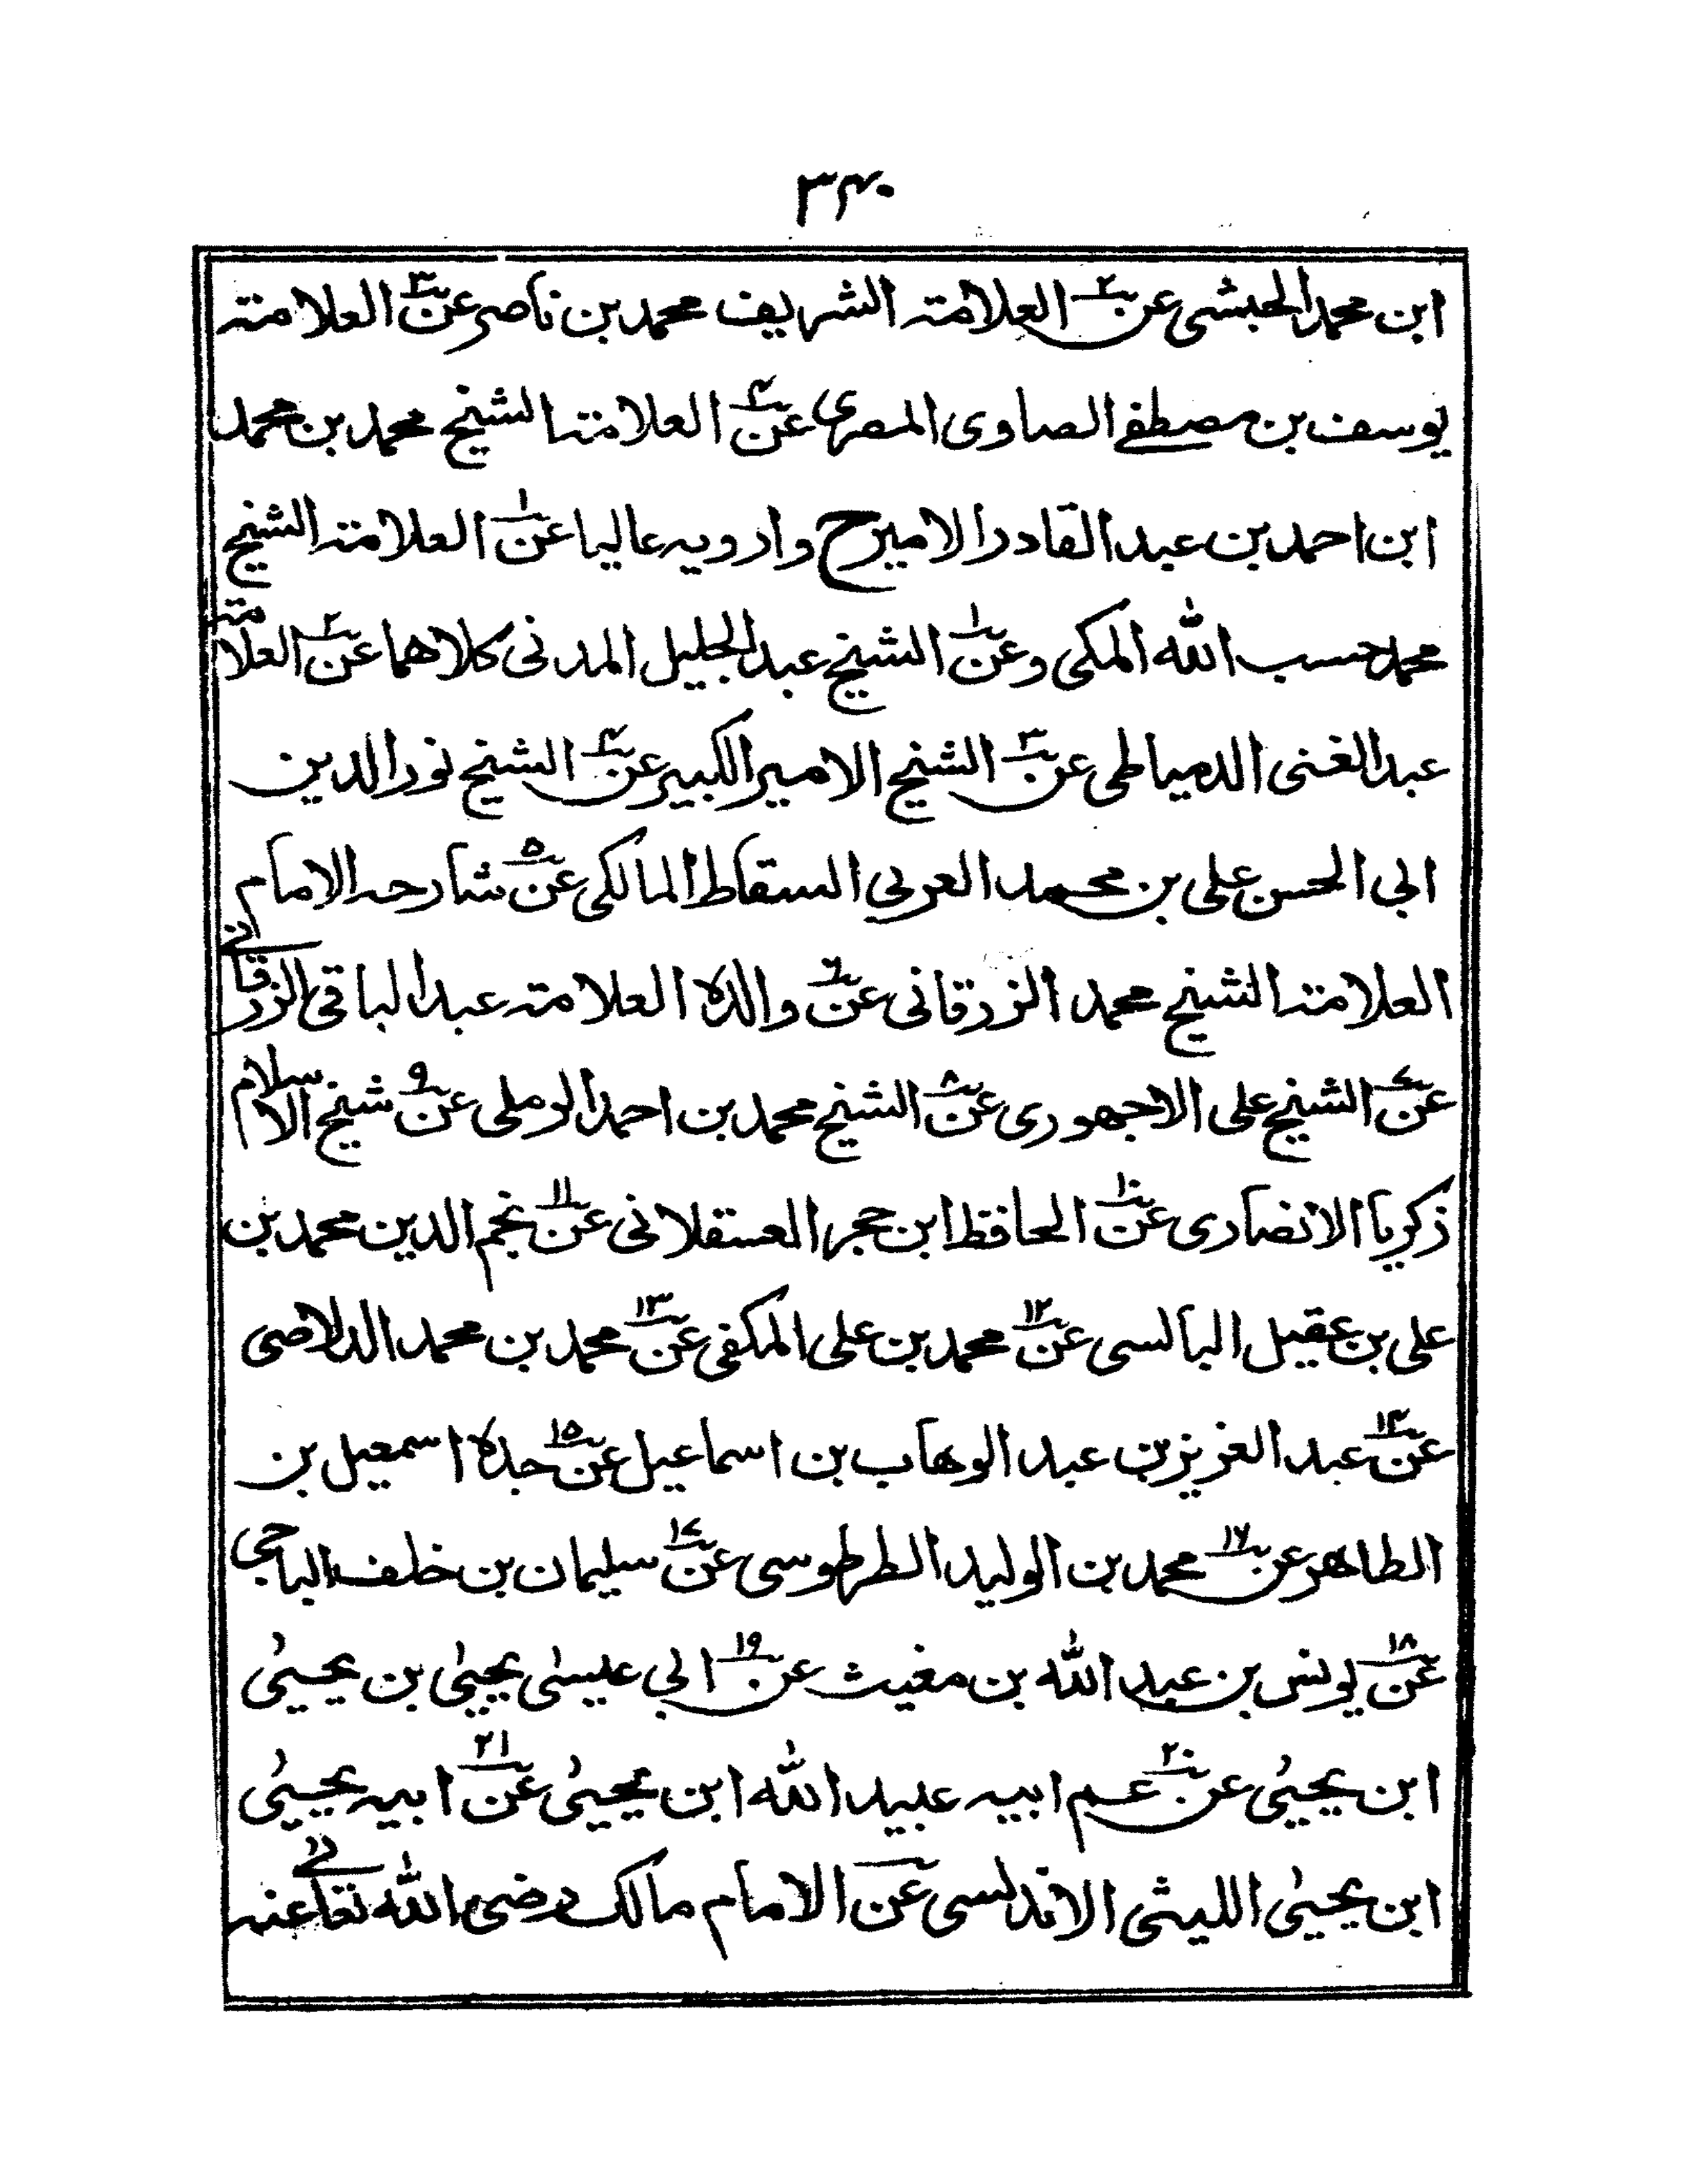 ۳۴۰
ابن محمد الحبشی عن۲ العلامتہ الشریف محمد بن ناصر عن۳ العلامتہ
یوسف بن مصطفے الصاوی المصری عن۴ العلامتہ الشیخ محمد بن محمد
ابن احمد بن عبد القادر الامیر ح وارویہ عالیا عن۱ العلامتہ الشیخ
محمد حسب اللہ المکی وعن۱ الشیخ عبد الجلیل المدنی کلاهما عن۲ العلامتہ
عبد الغنی الدمیاطی عن۳ الشیخ الامیر الکبیر عن۴ الشیخ نور الدین
ابی الحسن علی بن محمد العربی السقاط المالکی عن۵ شارحہ الامام
العلامتہ الشیخ محمد الزرقانی عن۶ والدہ العلامتہ عبد الباقی الزرقانے
عن۷ الشیخ علی الاجهوری عن۸ الشیخ محمد بن احمد الرملی عن۹ شیخ الاسلام
زکریا الانصاری عن۱۰ الحافظ ابن حجر العسقلانی عن۱۱ نجم الدین محمد بن
علی بن عقیل البالسی عن۱۲ محمد بن علی المکفی عن۱۳ محمد بن محمد الدلاصی
عن۱۴ عبد العزیز بن عبد الوهاب بن اسماعیل عن۱۵ جدہ اسمعیل بن
الطاهر عن۱۶ محمد بن الولید الطرطوسی عن۱۷ سلیمان بن خلف الباجی
عن۱۸ یونس بن عبد اللہ بن مغیث عن۱۹ ابی عیسیٰ یحییٰ بن یحییٰ
ابن یحییٰ عن۲۰ عم ابیہ عبید اللہ ابن یحییٰ عن۲۱ ابیہ یحییٰ
ابن یحییٰ اللیثی الاندلسی عن الامام مالک رضی اللہ تعالےٰ عنہ